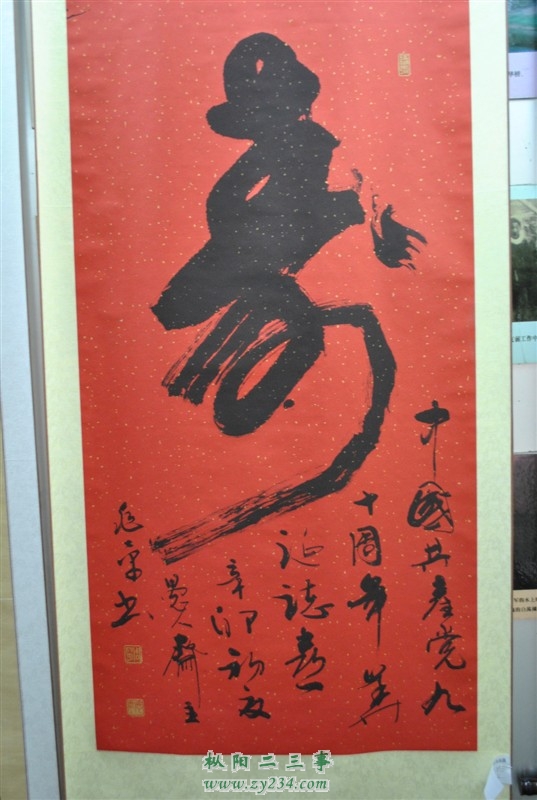 寿
中國共產党九
十周年華
诞誌喜
辛卯初夏
愚人齋主
书
枞阳二三事
www.zy234.com